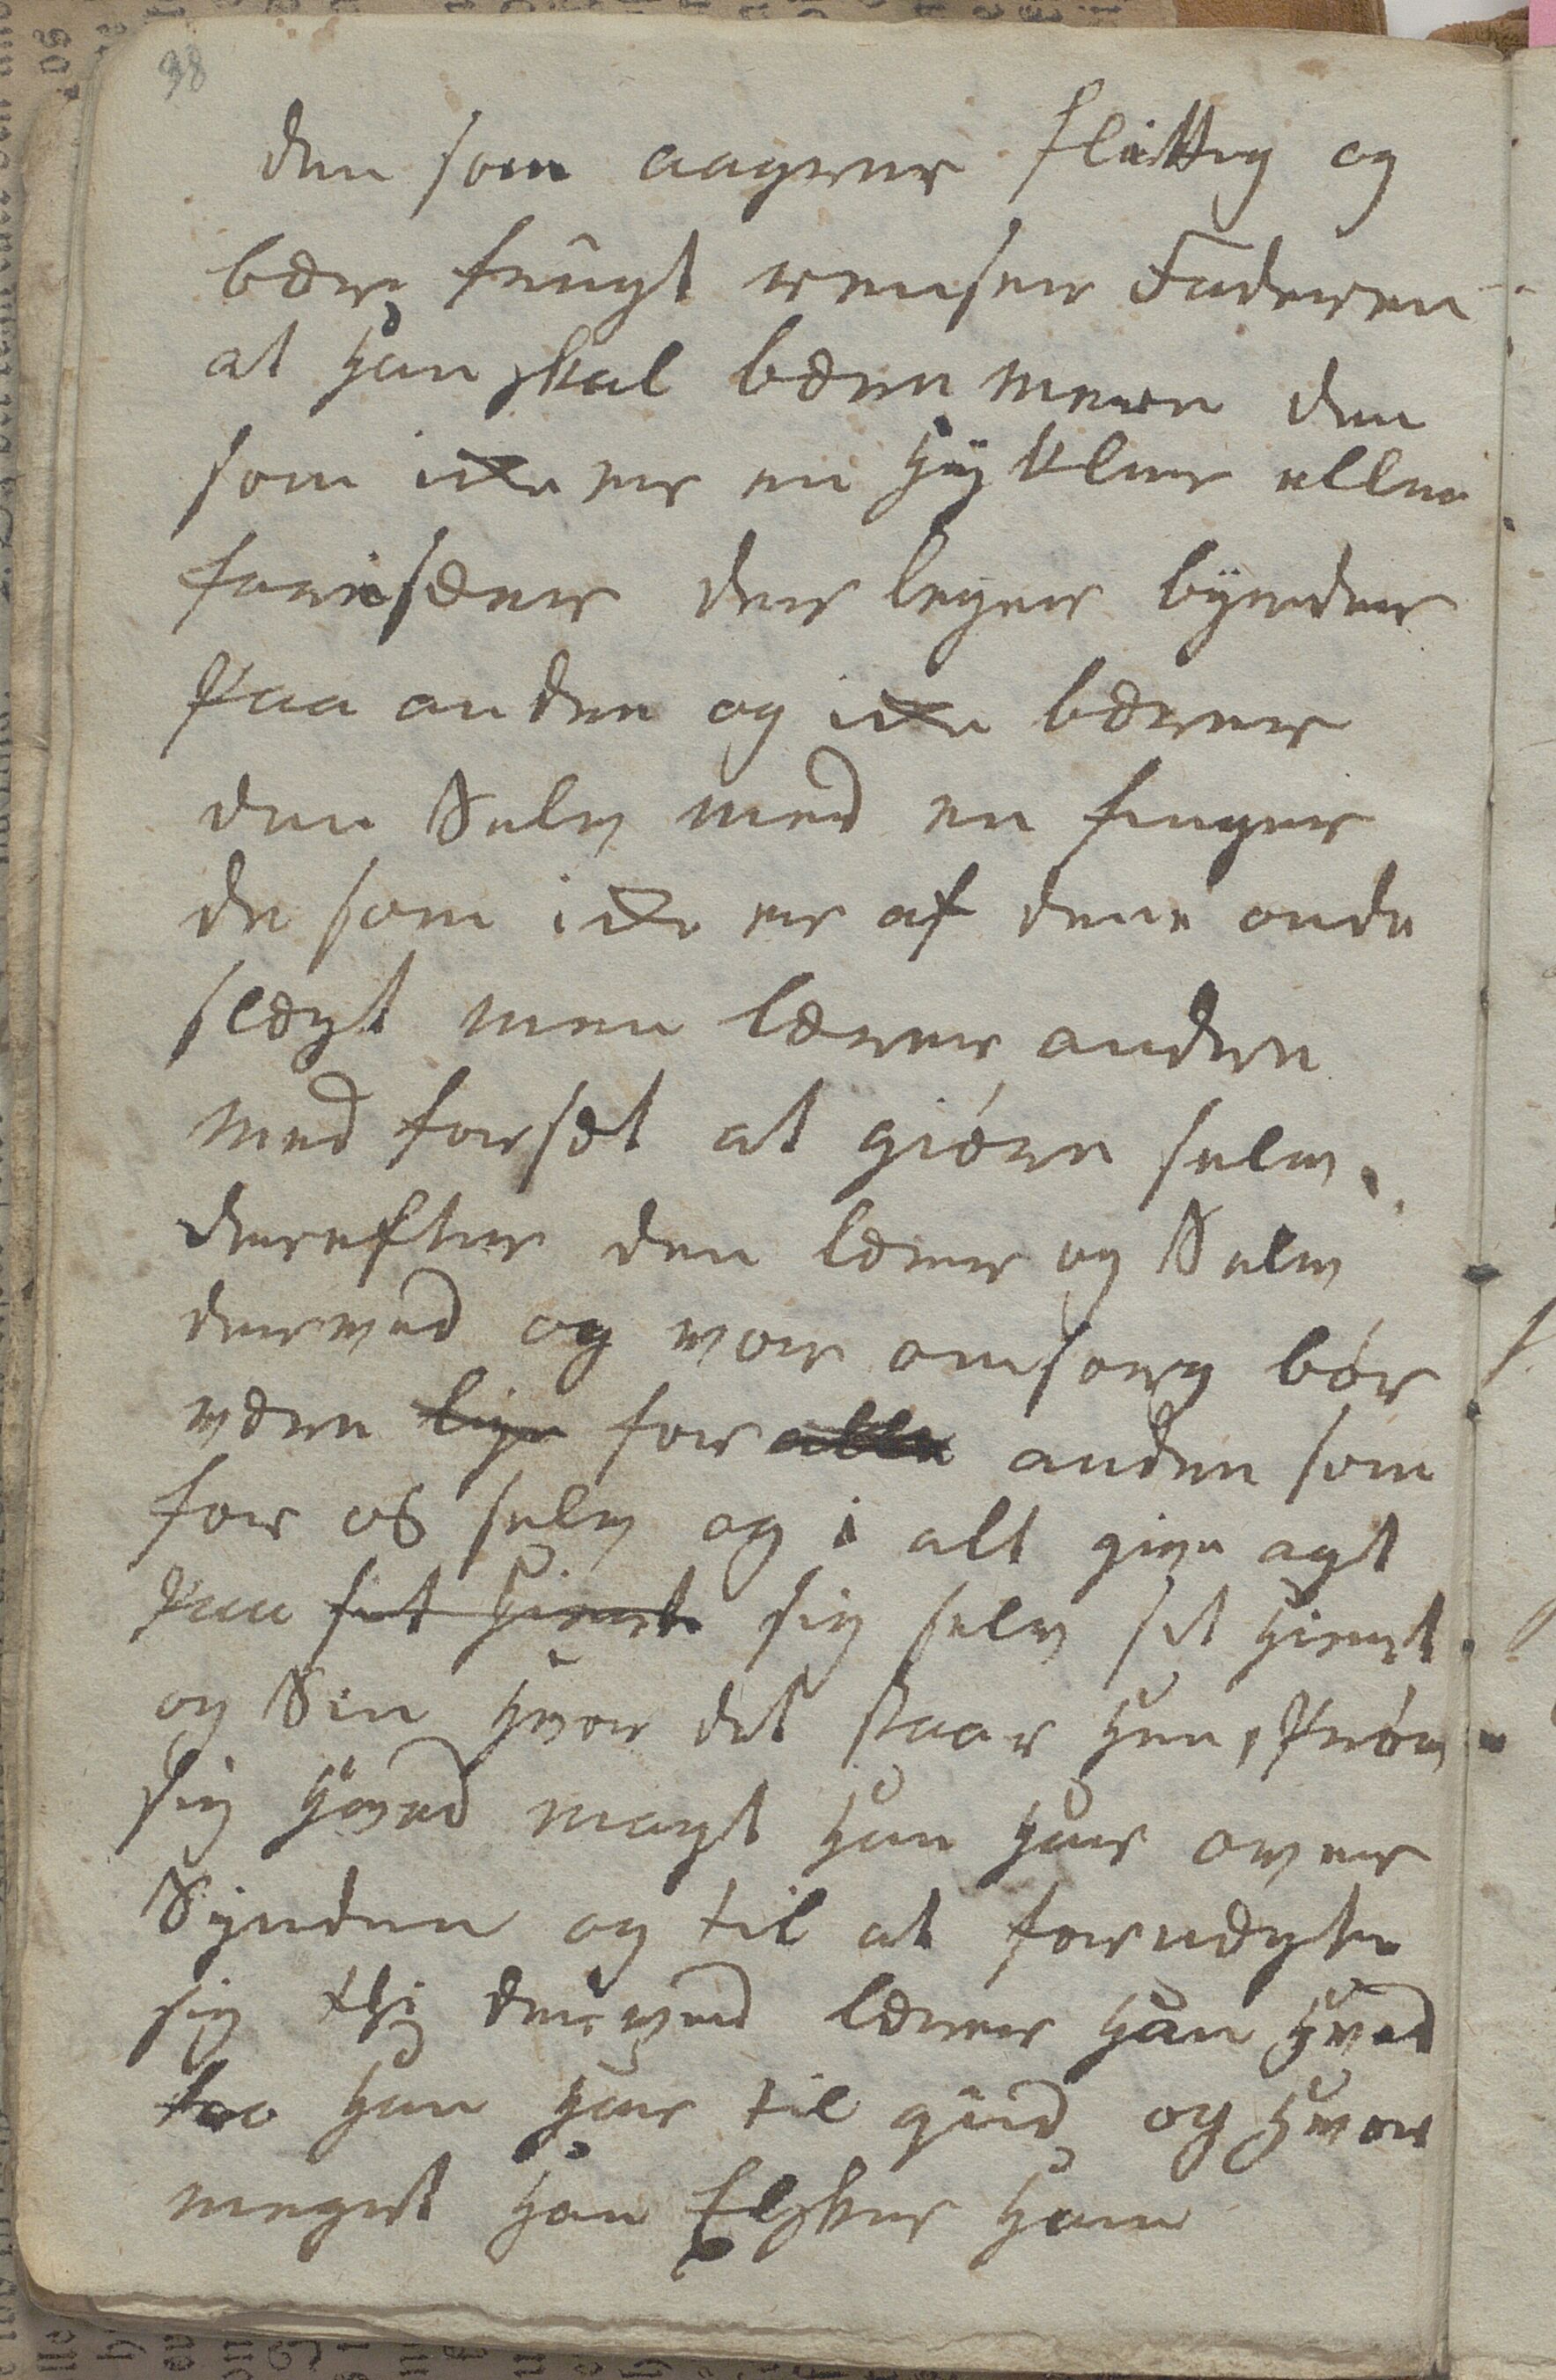 38
den som aagrer flittig og
bær frugt renser Faderen
at han skal bære mere den
som ike er en hÿkler eller
farisæer der leger bÿrder
Paa andre og ike bærer
dem Selv med en finger
de som ike er af dene onde
slægt men lærer andre
med forsæt at giøre selv
derefter den lærer og Selv
derved og vor omsorg bør
være lige for alle anden som
for os selv og i alt give agt
Paa sit Hiert sig selv sit Hiert
og Sin Hvor det staar hen, Prøv
sig Hvad magt han har over
Synden og til at fornægte
sig thj derved lærer han Hvad
tro han har til gud og Hvor
meget han Elsker ham